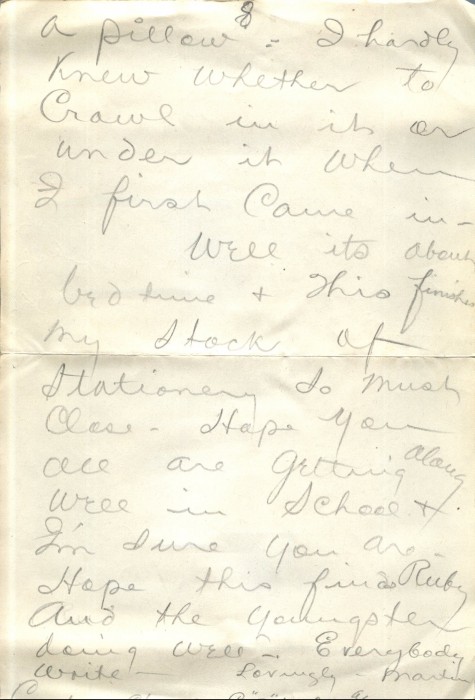 8
a pillow - I hardly
knew whether to
Crawl in it or
under it when
I first Came in -
Well its about
bed time + this finishes
my stock of
Stationery so must
Close - Hope you
all are getting along
well in School +
I'm sure you are -
Hope this finds Ruby
And the youngster
doing well - Everybody
write - Lovingly - Martin